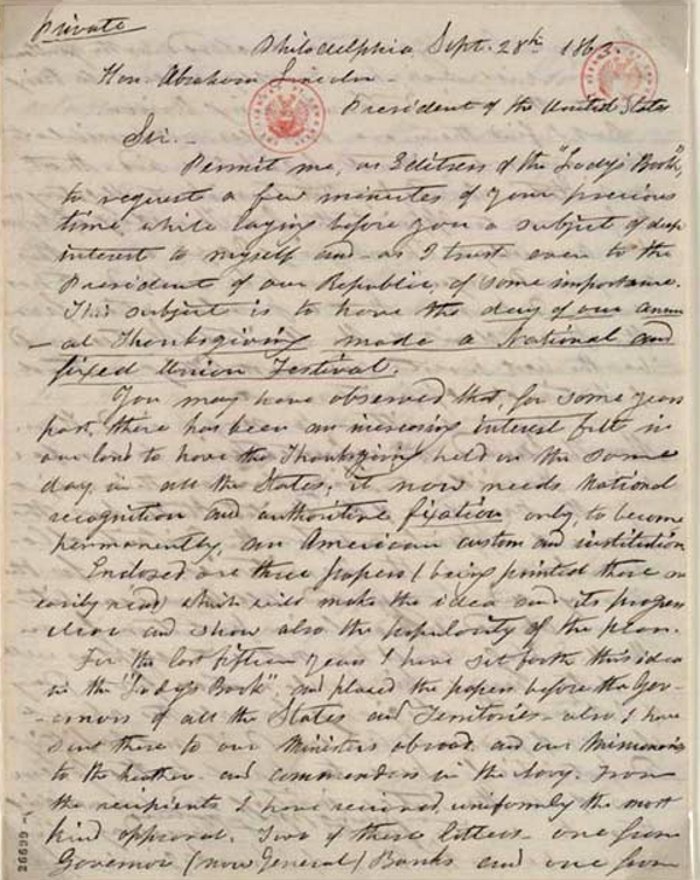 Private
Philadelphia, Sept. 28th 1863.
Hon. Abraham Lincoln -
President of the United States
Sir.-
Permit me, as Editress of the "Lady's Book",
to request a few minutes of your precious
time, while laying before you a subject of deep
interest to myself and - as I trust - even to the
President of our Republic, of some importance.
This subject is to have the day of our annu
- al Thanksgiving made a National and
fixed Union Festival.
You may have observed that, for some years
past, there has been an increasing interest felt in
our land to have the Thanksgiving held on the same
day, in all the States; it now needs National
recognition and authoritive fixation, only, to become
permanently, an American custom and institution.
Enclosed are three papers (being printed these are
easily read) which will make the idea and its progress
clear and show also the popularity of the plan.
For the last fifteen years I have set forth this idea
in the "Lady's Book", and placed the papers before the Gov-
- ernors of all the States and Territories - also I have
sent these to our Ministers abroad, and our Missionaries
to the heathen - and commanders in the Navy. From
the recipients I have received, uniformly the most
kind approval. Two of these letters - one from
Governor (now General) Banks and one from
26699